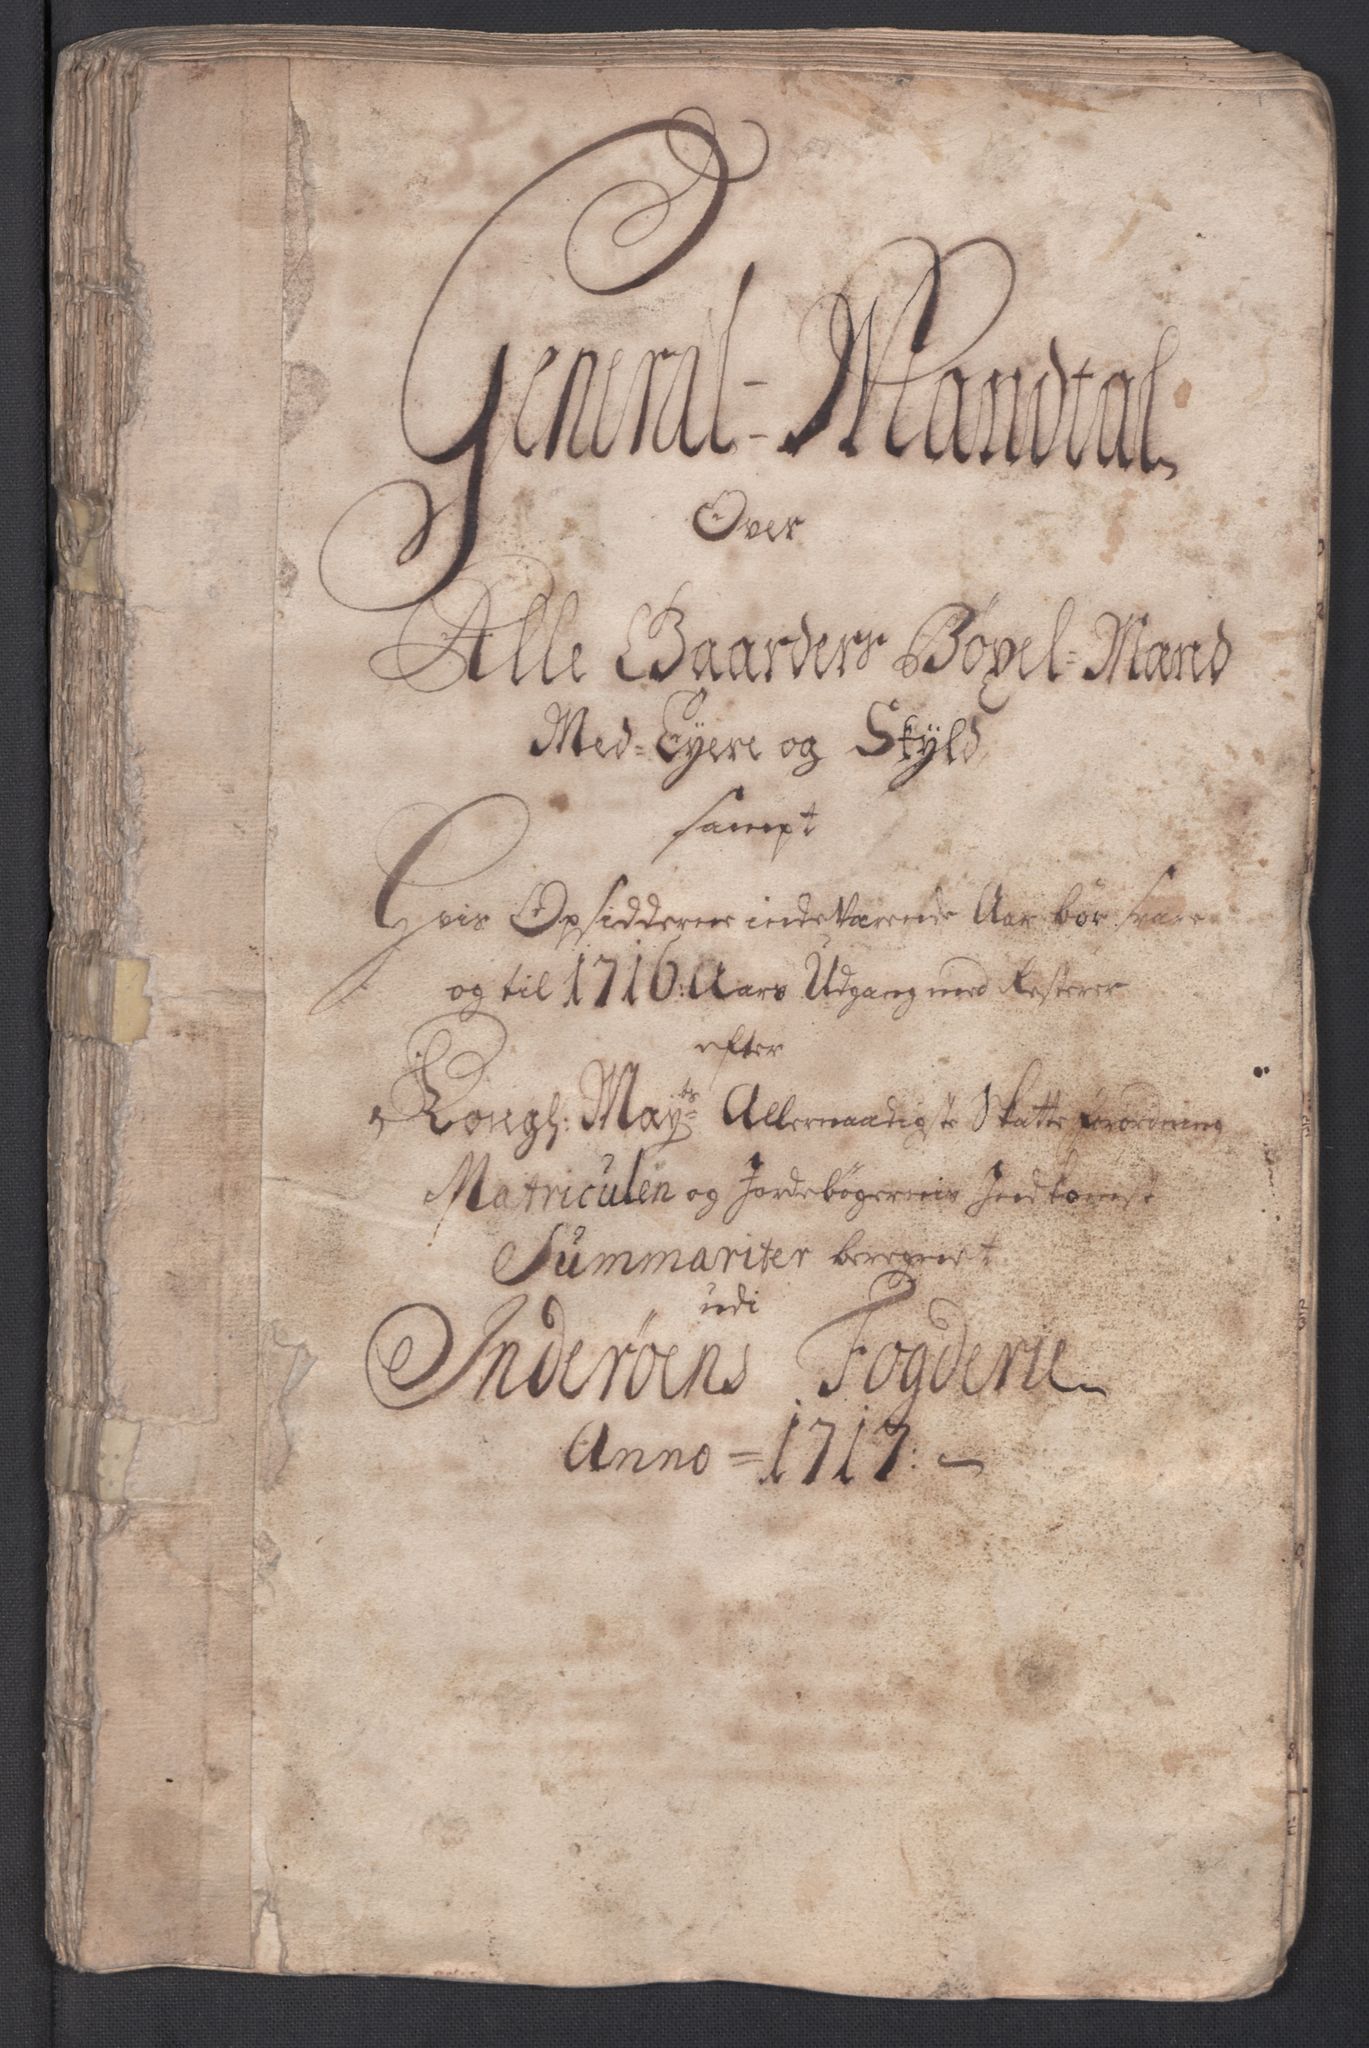 General-Mandtal
Over
Alle Gaarders Böxel-Mænd
Med-Eyere og Skÿld
sampt
Hvis Opsidderne indeværende Aar bör svare
og til 1716: Aars Udgang med Resterer
efter
Kongl: May:ts Allernaadigste Skatte forordning
Matriculen og Jordebögernis Indkomst
Summariter beregnet
udi
Inderöens Fogderie
Anno = 1717: